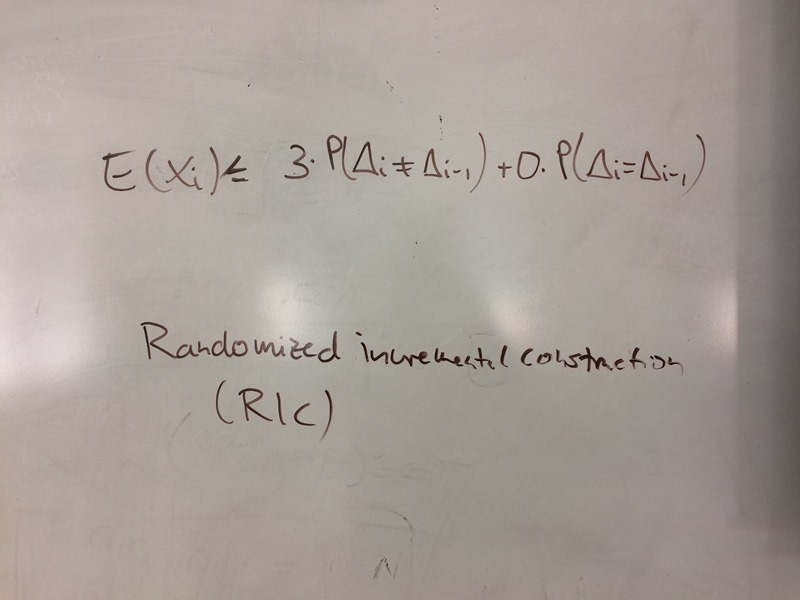 E(Xi) ≤ 3·P(Δi ≠ Δi-1) + 0·P(Δi=Δi-1)
Randomized incremental construction
(RIC)